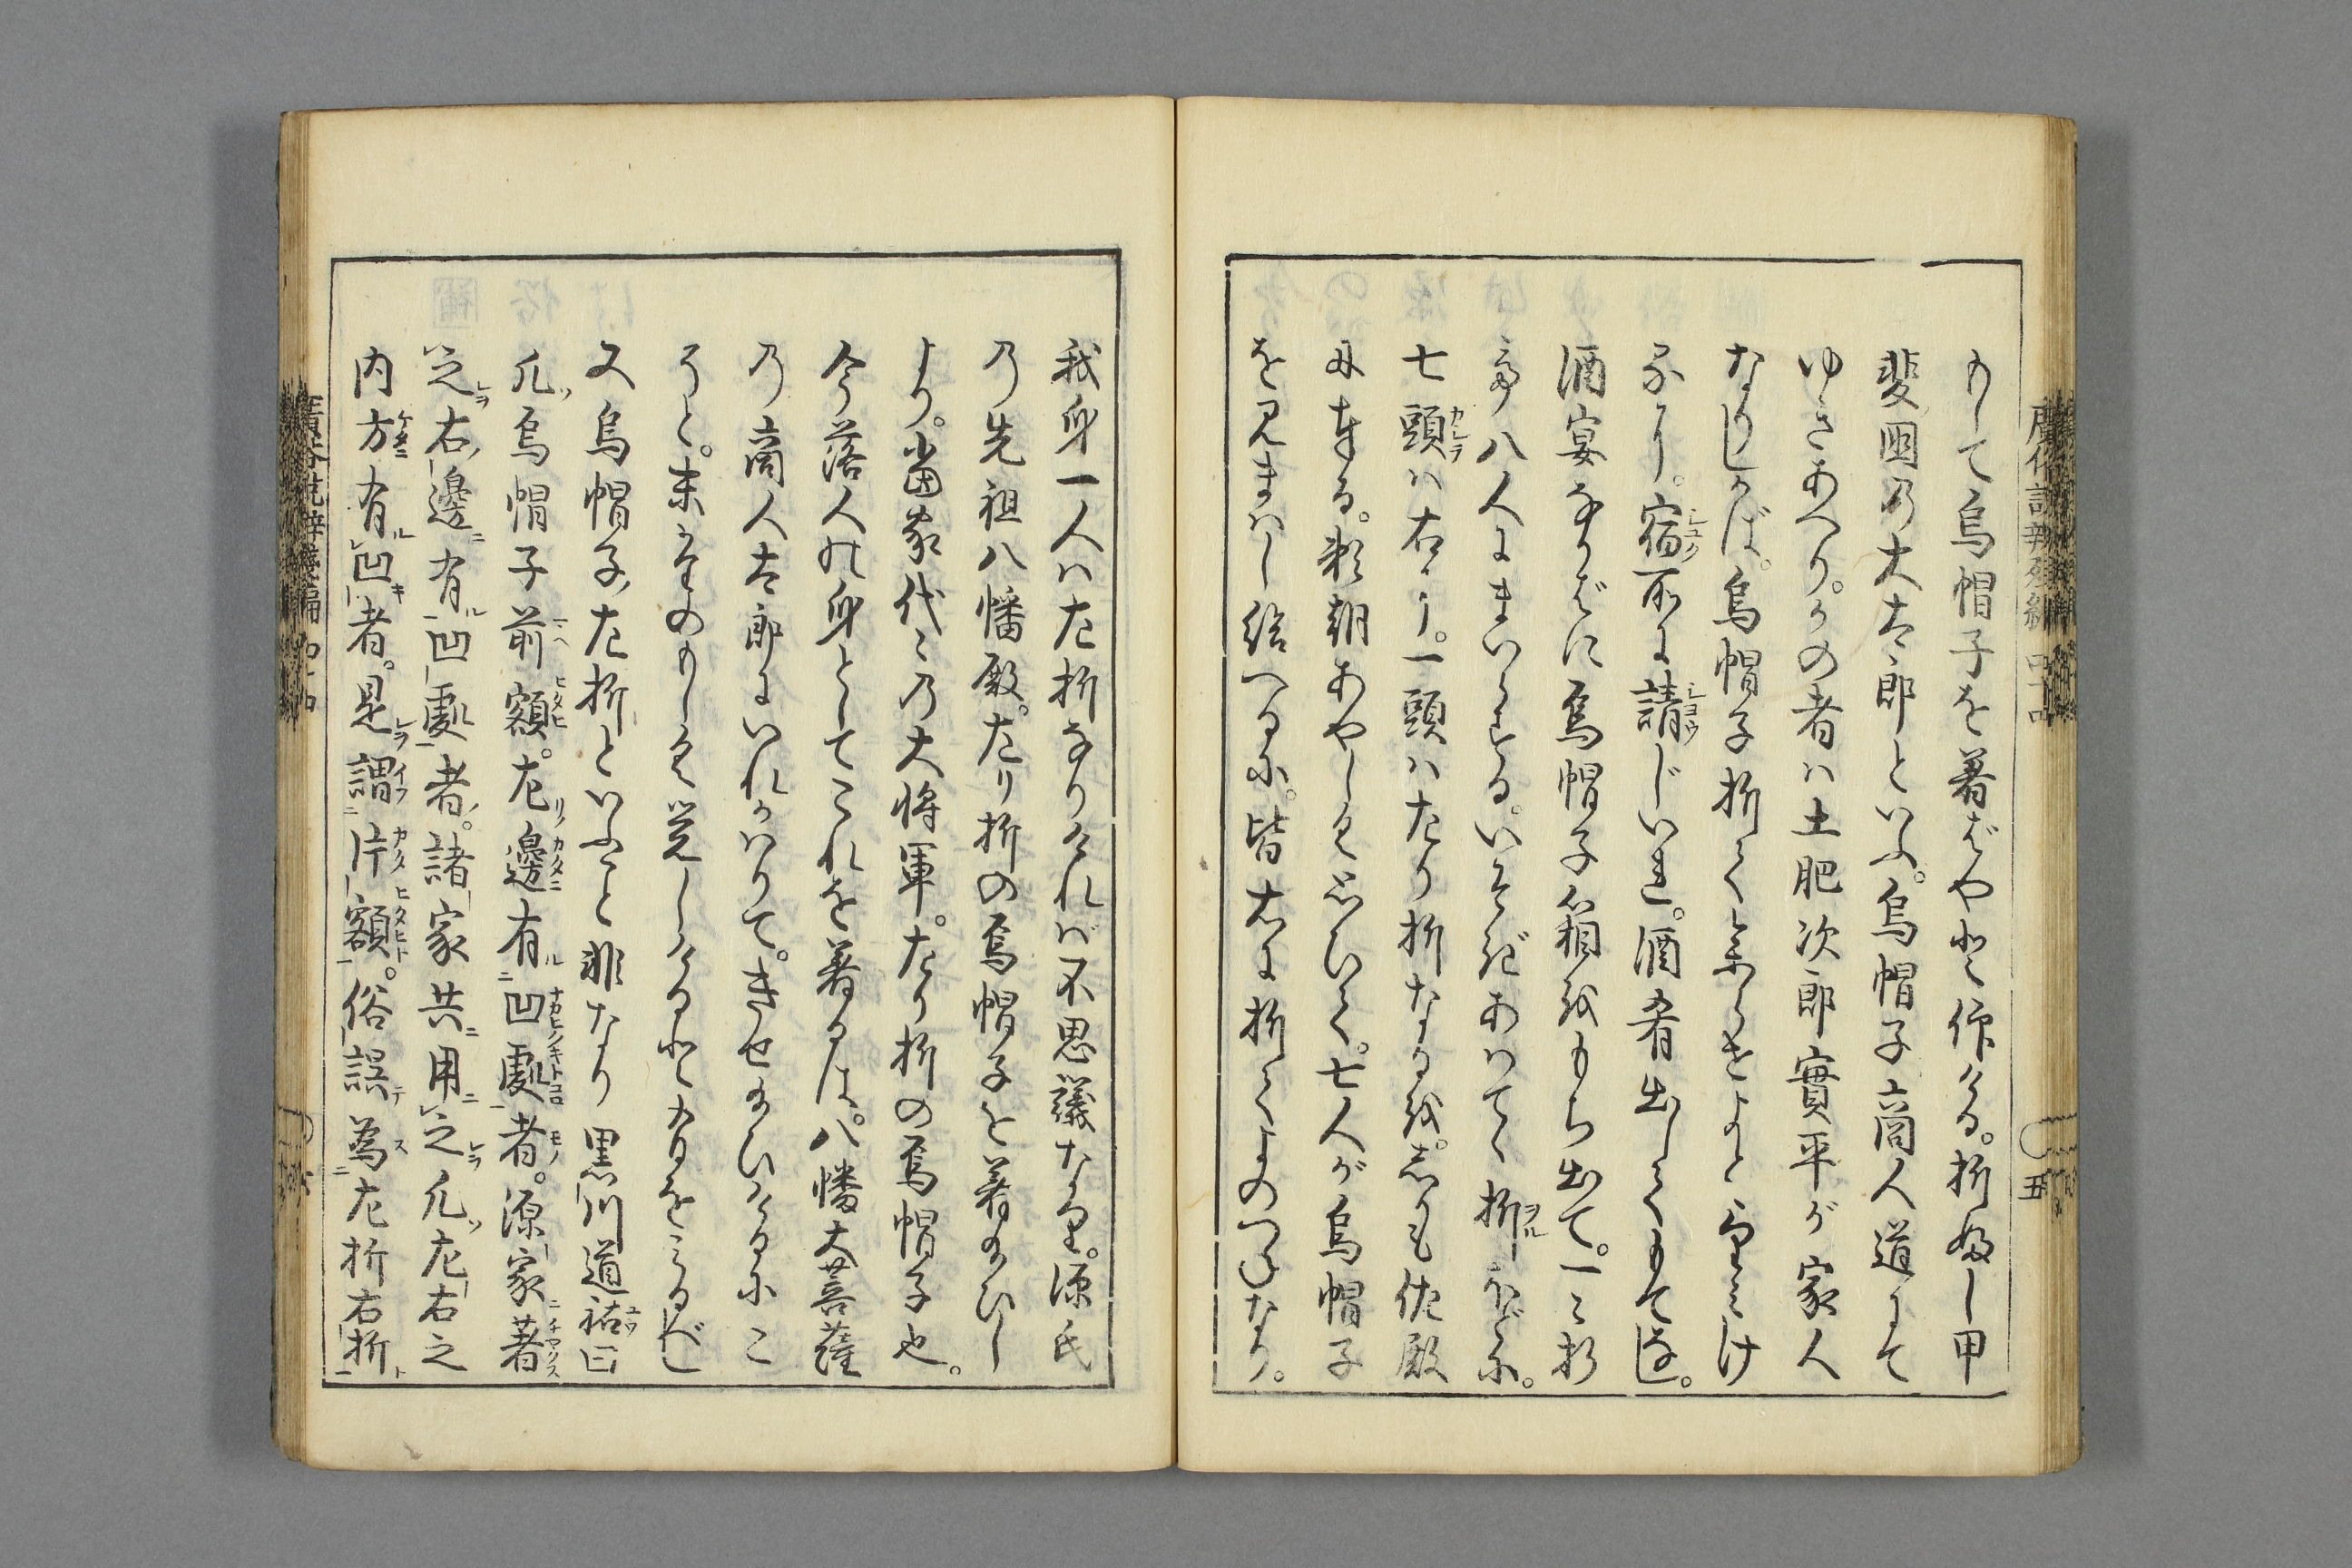 して烏帽子を著ばやと作ける。折ふし甲
斐国の大太郎といふ。烏帽子商人道にて
ゆきあへり。かの者ハ土肥次郎實平が家人
なりしかば。烏帽子折てまゐらせよと
宿所に請じいれ。酒肴出してもてなし。
酒宴なかばに烏帽子箱をもち出て。一ミ折
て八人にまいらする。いそぎあハてゝ折ほどに。
七頭ハ右なり。一頭ハ左り折なるを。しかも佐殿
に奉る。頼朝あやしく思ひて。七人が烏帽子
を見まハし給へるに。皆右に折てよのつねなり。
我身一人ハ左折なりければ不思議なり。源氏
乃先祖八幡殿。左り折の烏帽子を著給ひし
より。當家代ミ乃大将軍。左り折の烏帽子也。
今落人の身としてこれを著るは。八幡大菩薩
乃商人太郎にいれかハりて。きせ給ひけるにこ
そと。末たのもしく覚しけると
又烏帽子左折といふこと非なり黒川道祐曰
凡烏帽子前額。左邊有凹處者。源家著
之右邊有凹處者。諸家共用之凡左右之
内方有凹者。是謂片額。俗誤為左折右折